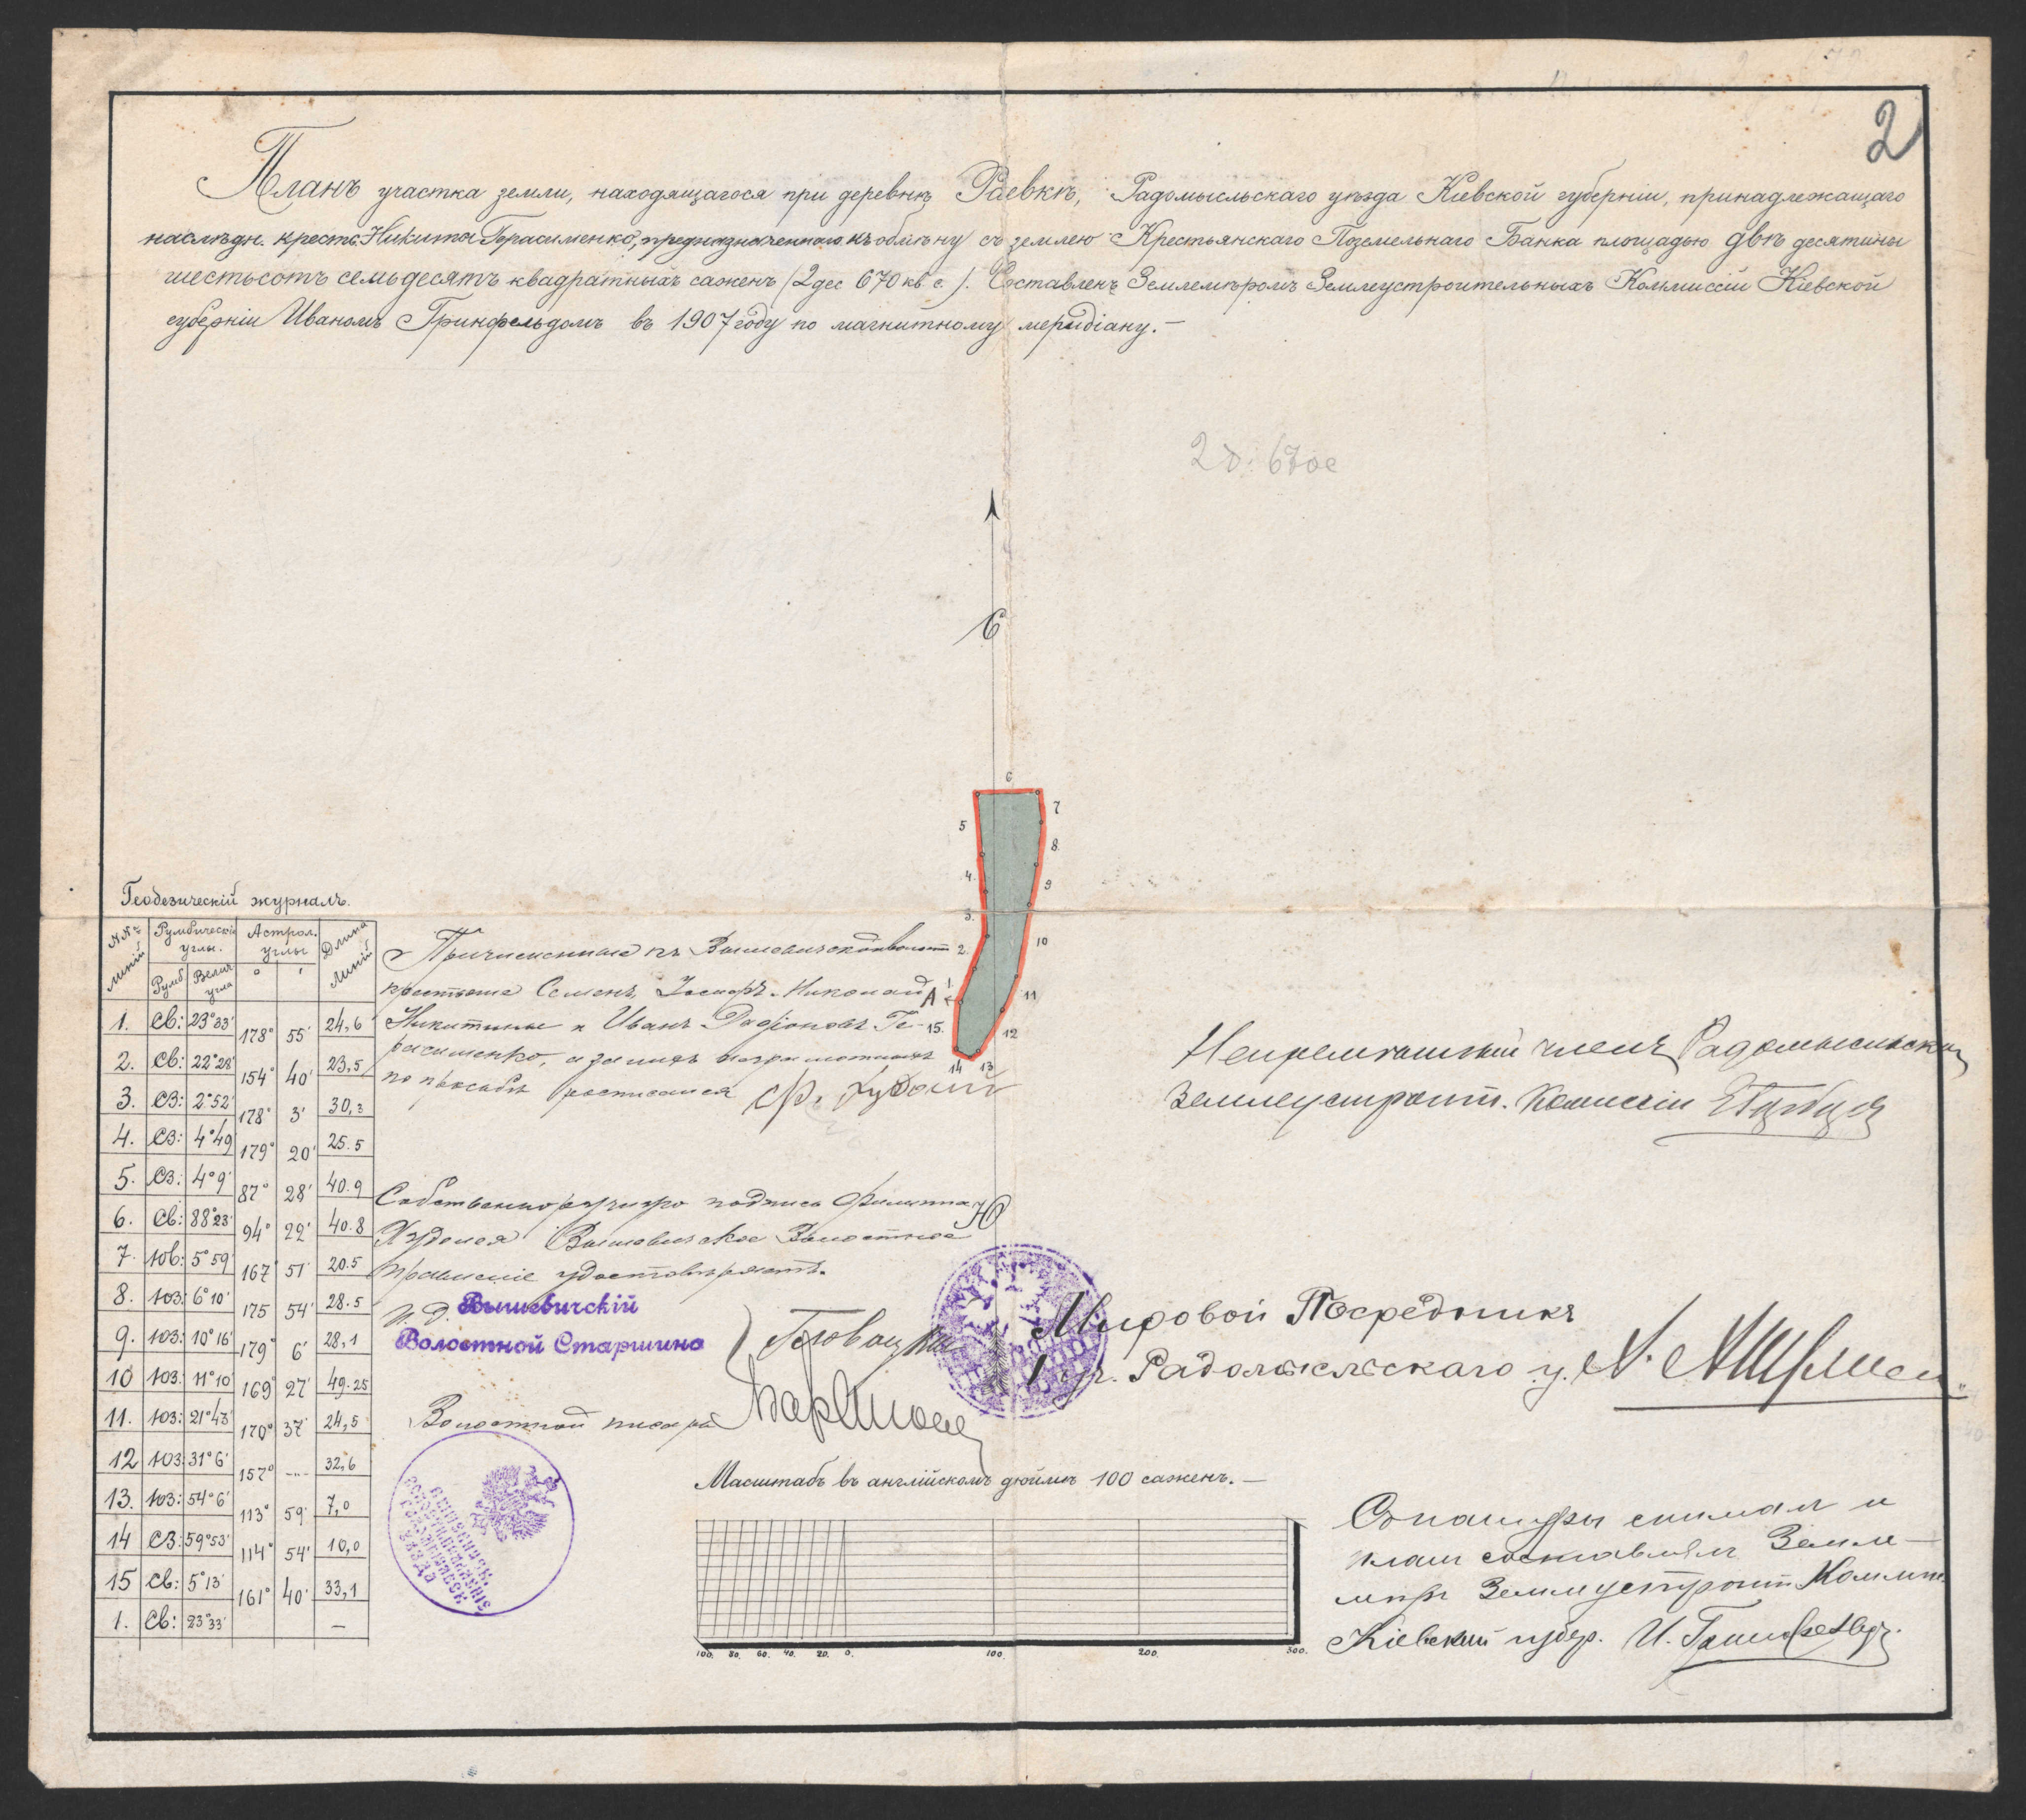 2
Планъ участка земли, находящагося при деревнѣ Раевкѣ, Радомысльскаго уѣзда Кіевской губерніи, принадлежащаго
наслѣдн. крест. Никиты Герасименко, предназначеннаго къ обмѣну съ землею Крестьянскаго Поземельнаго Банка площадью двѣ десятины
шестьсотъ семьдесятъ квадратныхъ саженъ (2 дес 670 кв с.). Составленъ Землемѣромъ Землеустроительныхъ Коммиссій Кіевской
губерніи Иваномъ Гринфельдомъ въ 1907 году по магнитному меридіану.—
2 д. 670 с
С
6
5 7
4. 8.
3. 9
2. 10
1 11
А
15. 12
14 13
Ю
Геодезическій журналъ.
№№ линій Румбическіе углы. Астрол. углы Длина линій
Румб Велич угла ° ′
1. СВ: 23°33′ 24,6
178° 55′
2. СВ: 22°28′ 23,5
154° 40′
3. СЗ: 2°52′ 30,3
178° 3′
4. СЗ: 4°49 25.5
179° 20′
5. СЗ: 4°9′ 40.9
87° 28′
6. СВ: 88°23′ 40.8
94° 22′
7. ЮВ: 5°59′ 20.5
167° 51′
8. ЮЗ: 6°10′ 28.5
175 54′
9. ЮЗ: 10°16′ 28,1
179° 6′
10 ЮЗ: 11°10′ 49.25
169° 27′
11. ЮЗ: 21°43′ 24,5
170° 37′
12 ЮЗ: 31°6′ 32,6
157° -"-
13. ЮЗ: 54°6′ 7,0
113° 59′
14 СЗ: 59°53′ 10,0
114° 54′
15 СВ: 5°13′ 33,1
161° 40′
1. СВ: 23°33′ —
Причисленные къ Вышевичской волости
крестьяне Семенъ, Николай
Никитины и Иванъ Родіоновъ Ге-
расименко, а за нихъ неграмотныхъ
по просьбѣ росписался Ф. Худолій
Собственноручную подпись Филиппа
Худолія Вышевичское Волостное
Правленіе удостовѣряетъ.
И. д. Вышевичскій
Волостной Старшина
Волостной писарь
Непремѣнный членъ Радомысльской
Землеустроит. Комиссіи
Мировой Посредникъ
1 уч. Радомысльскаго у.
Масштабъ въ англійскомъ дюймѣ 100 саженъ.—
100. 80. 60. 40. 20. 0. 100. 200. 300.
Съ натуры снималъ и
планъ составлялъ Земле-
мѣръ Землеустроит. Коммис.
Кіевской губер. И. Гринфельдъ.